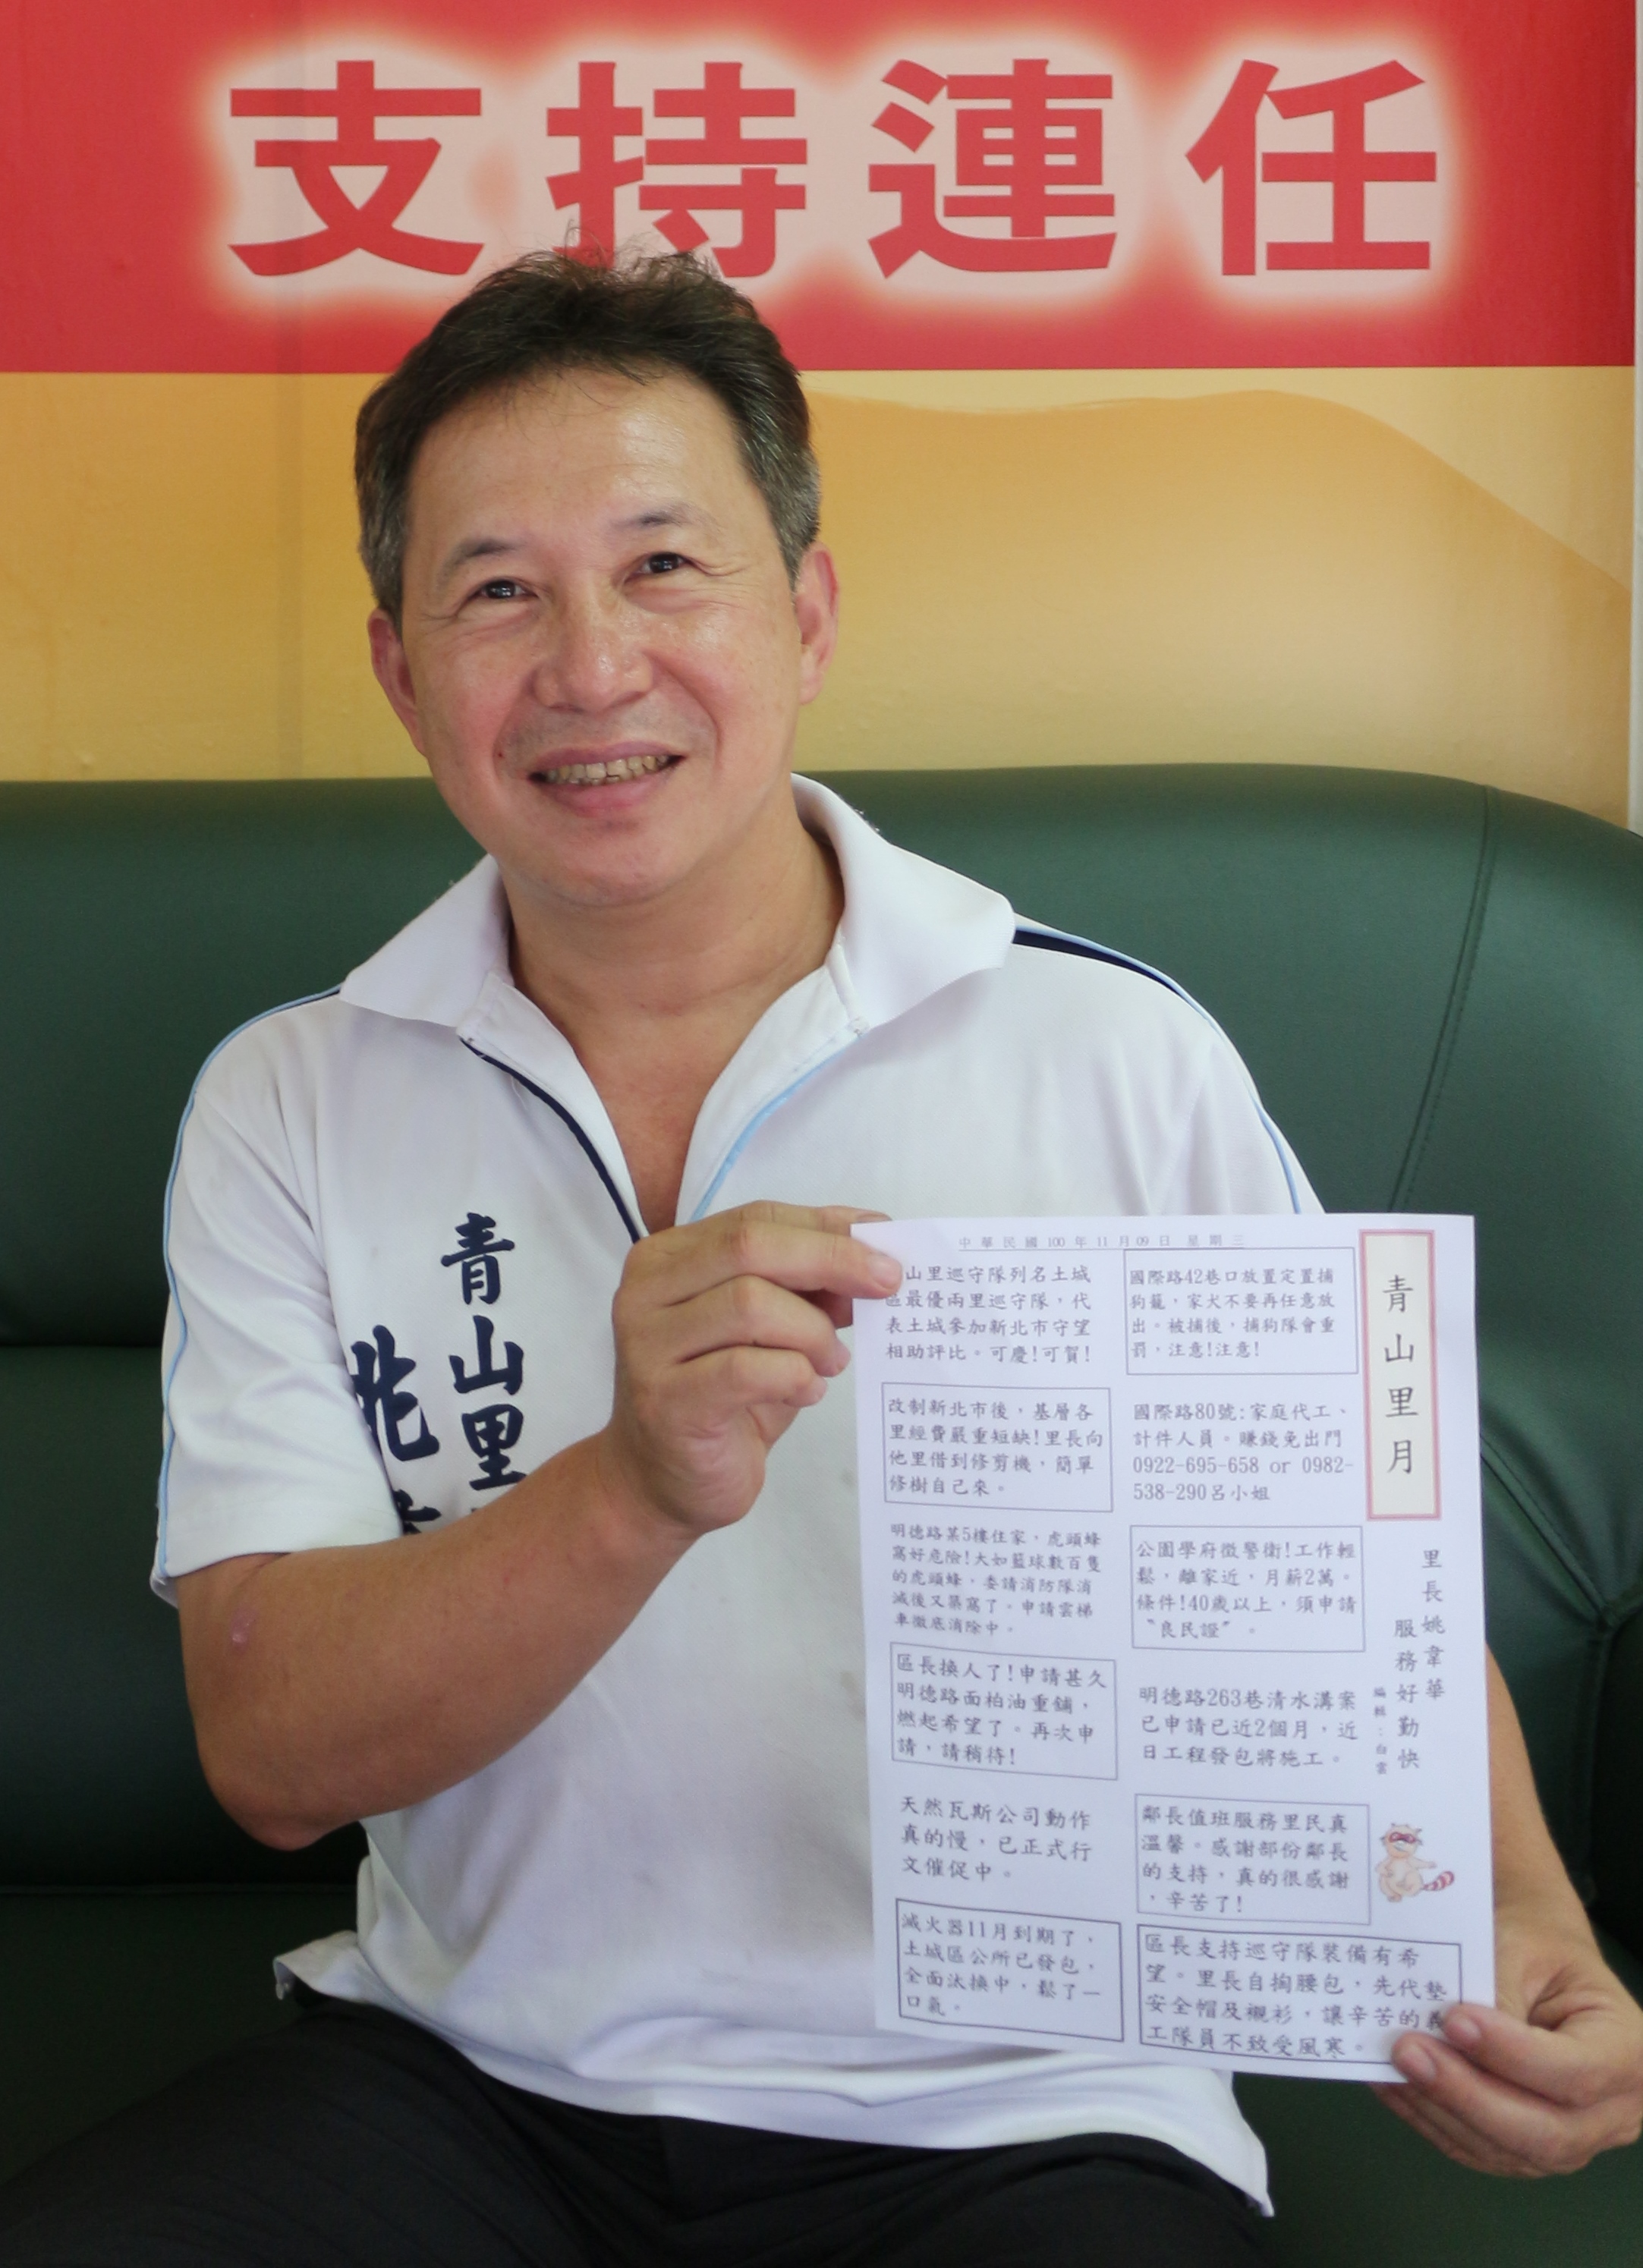 支持連任
青山里
姚
中華民國100年11月09日 星期三
青山里月
里長姚韋華
服務好勤快
編輯:白雲
國際路42巷口放置定置捕
狗籠,家犬不要再任意放
出。被捕後,捕狗隊會重
罰,注意!注意!
國際路80號:家庭代工、
計件人員。賺錢免出門
0922-695-658 or 0982-
538-290呂小姐
公園學府徵警衛!工作輕
鬆,離家近,月薪2萬。
條件!40歲以上,須申請
〝良民證〞。
明德路263巷清水溝案
已申請已近2個月,近
日工程發包將施工。
鄰長值班服務里民真
溫馨。感謝部份鄰長
的支持,真的很感謝
,辛苦了!
區長支持巡守隊裝備有希
望。里長自掏腰包,先代墊
安全帽及襯衫,讓辛苦的義
工隊員不致受風寒。
山里巡守隊列名土城
區最優兩里巡守隊,代
表土城參加新北市守望
相助評比。可慶!可賀!
改制新北市後,基層各
里經費嚴重短缺!里長向
他里借到修剪機,簡單
修樹自己來。
明德路某5樓住家,虎頭蜂
窩好危險!大如籃球數百隻
的虎頭蜂,委請消防隊消
滅後又築窩了。申請雲梯
車徹底消除中。
區長換人了!申請甚久
明德路面柏油重舖,
燃起希望了。再次申
請,請稍待!
天然瓦斯公司動作
真的慢,已正式行
文催促中。
滅火器11月到期了,
土城區公所已發包,
全面汰換中,鬆了一
口氣。